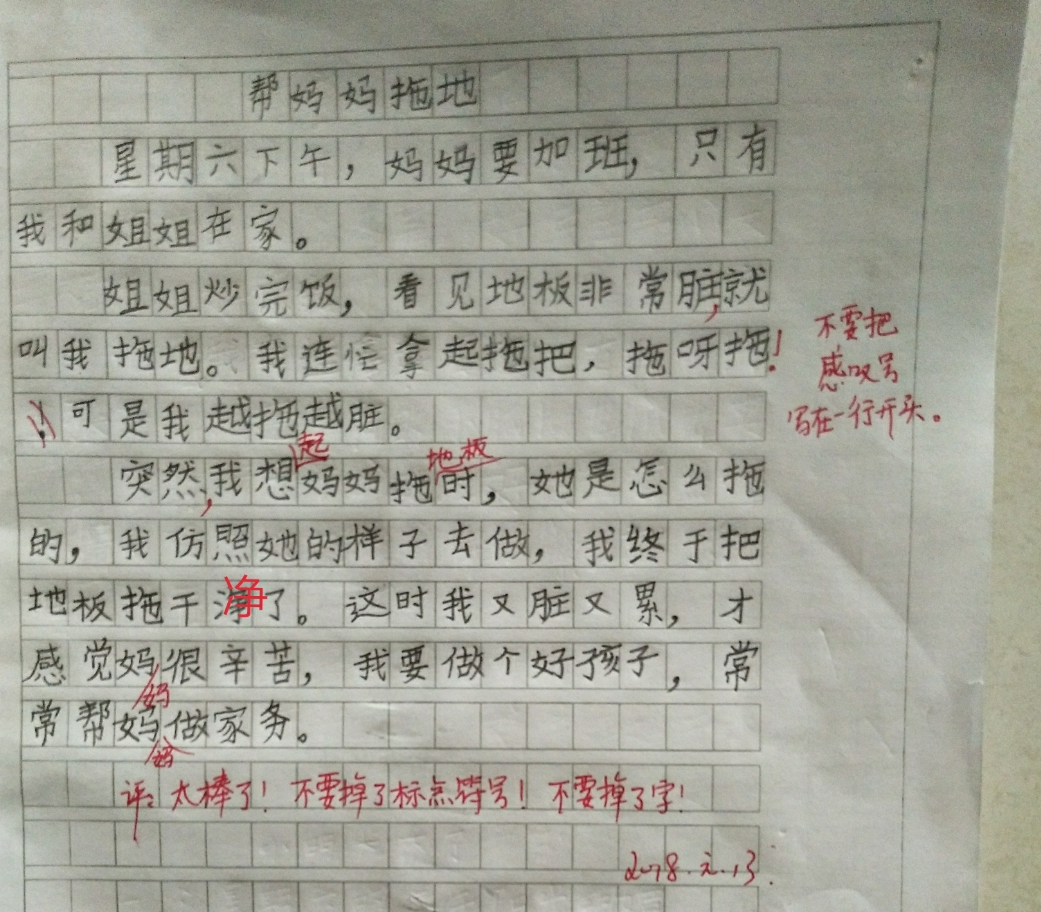 帮妈妈拖地
星期六下午，妈妈要加班，只有
我和姐姐在家。
姐姐炒完饭，看见地板非常脏，就
叫我拖地。我连忙拿起拖把，拖呀拖！
不要把
感叹号
写在一行开头。
可是我越拖越脏。
起 地板
突然，我想妈妈拖时，她是怎么拖
的，我仿照她的样子去做，我终于把
地板拖干净了。这时我又脏又累，才
感觉妈很辛苦，我要做个好孩子，常
妈
常帮妈做家务。
妈
评：太棒了！不要掉了标点符号！不要掉了字！